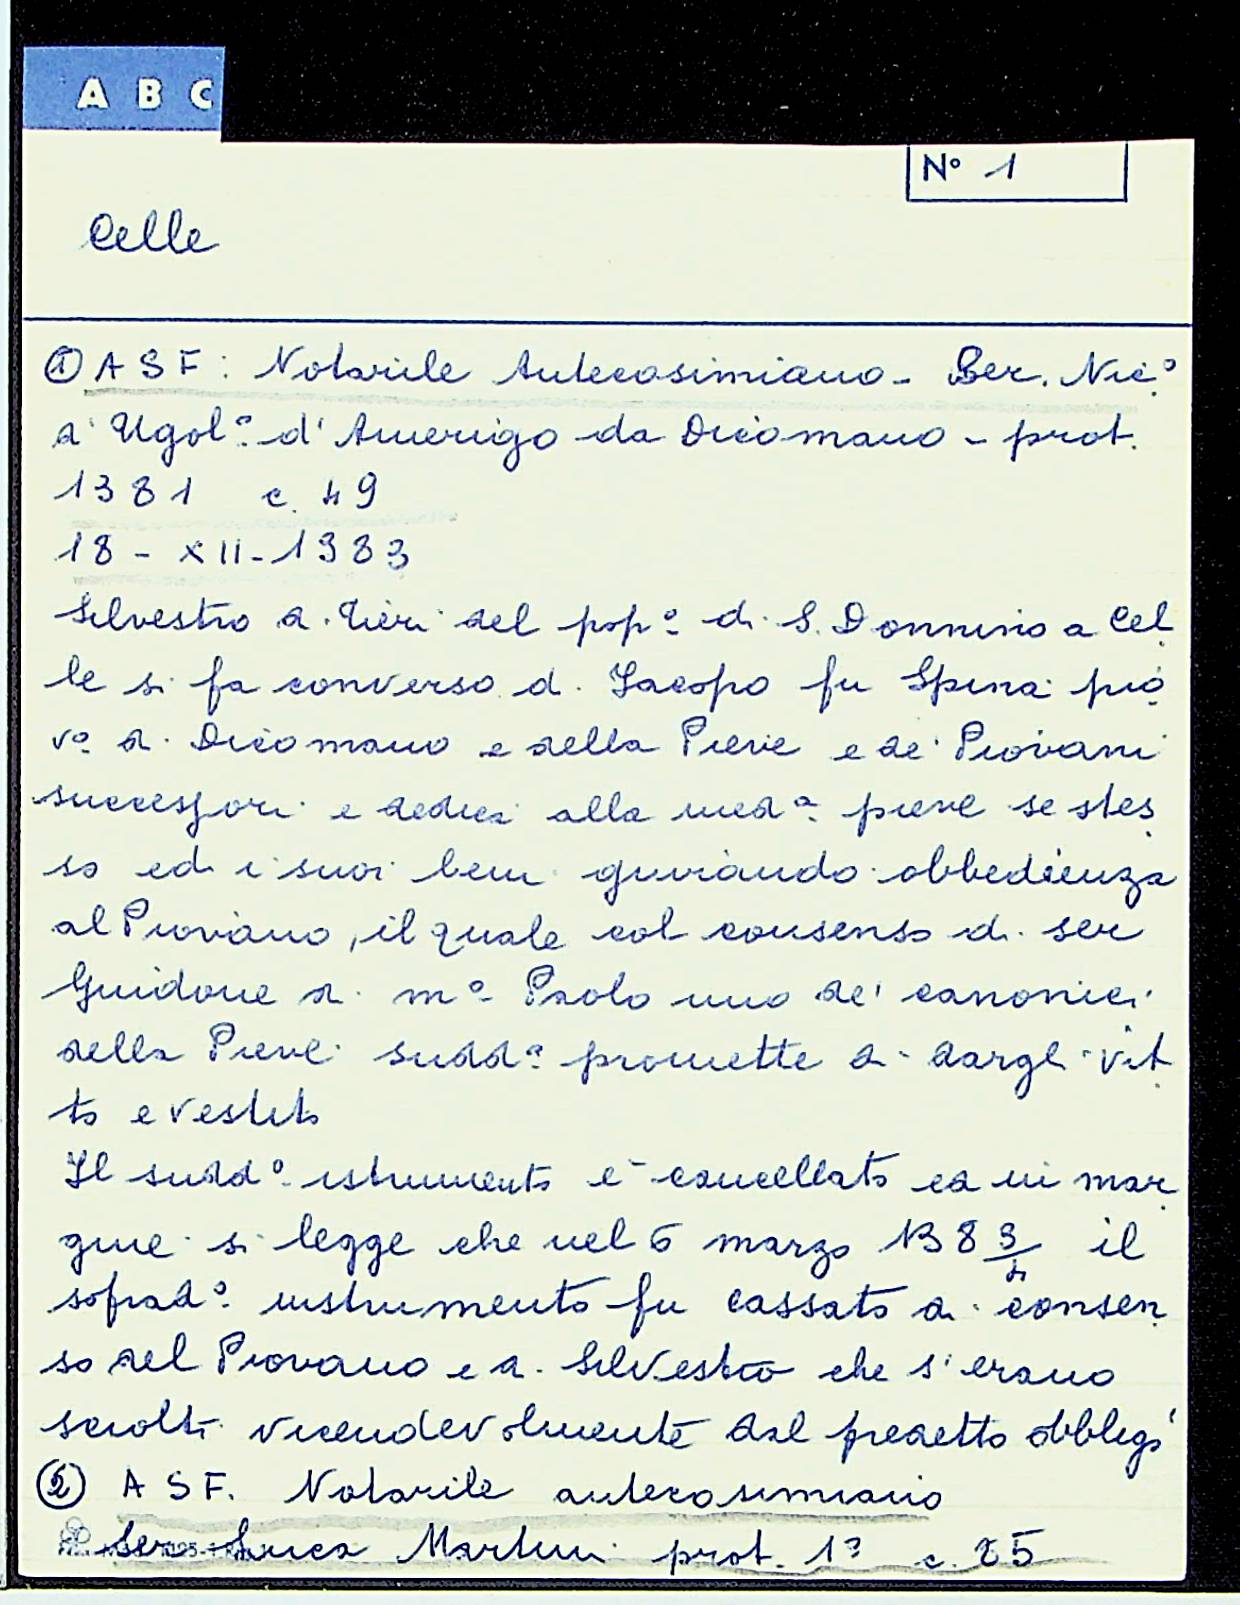 A B C
Nº 1
Celle
① ASF: Notarile Antecosimiano - Ser. Nic.º
d' Ugol.º d'Amerigo da Dicomano - prot.
1381 c. 49
18 - XII - 1383
Silvestro di Tieri del pop.º di S. Donnino a Cel
le si fa converso di Jacopo fu Spina pio
v.º di Dicomano e della Pieve e de' Piovani
successori e dedica alla med.ª pieve se stes
so ed i suoi beni giurando obbedienza
al Piovano, il quale col consenso di ser
Guidone di m.º Paolo uno de' canonici
della Pieve sudd.ª promette di dargli vit
to e vestito
Il sudd.º istrumento è cancellato ed in mar
gine si legge che nel 6 marzo 1383/4 il
soprad.º instrumento fu cassato di consen
so del Piovano e di Silvestro che s'erano
sciolti vicendevolmente dal predetto obbligo
② ASF. Notarile antecosimiano
Ser Luca Martini prot. 1º c. 85